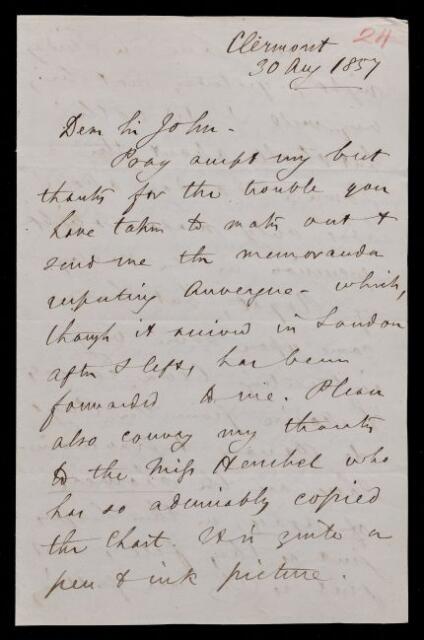 24
Clermont
30 Aug 1857
Dear Sir John -
Pray accept my best
thanks for the trouble you
have taken to make out &
send me the memoranda
respecting Auvergne - which,
though it arrived in London
after I left, has been
forwarded to me. Please
also convey my thanks
to the Miss Herschel who
has so admirably copied
the Chart. It is quite a
pen & ink picture.